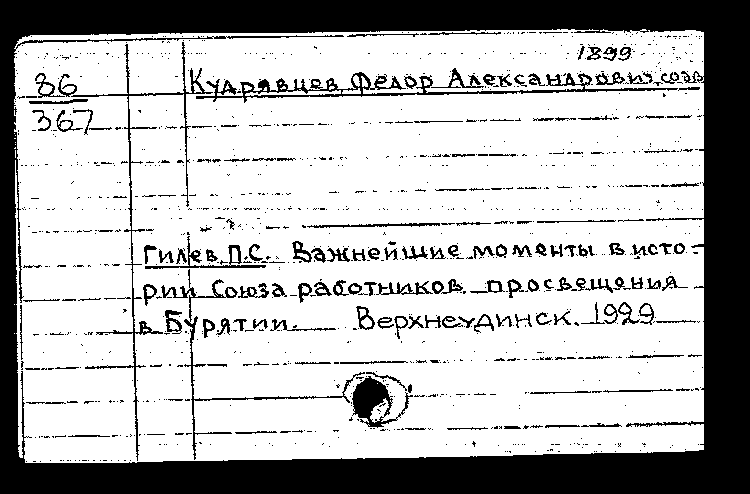 1899
86 Кудрявцев Федор Александрович, соав
367
Гилев, П.С. Важнейшие моменты в исто-
рии Союза работников просвещения
в Бурятии. Верхнеудинск. 1929